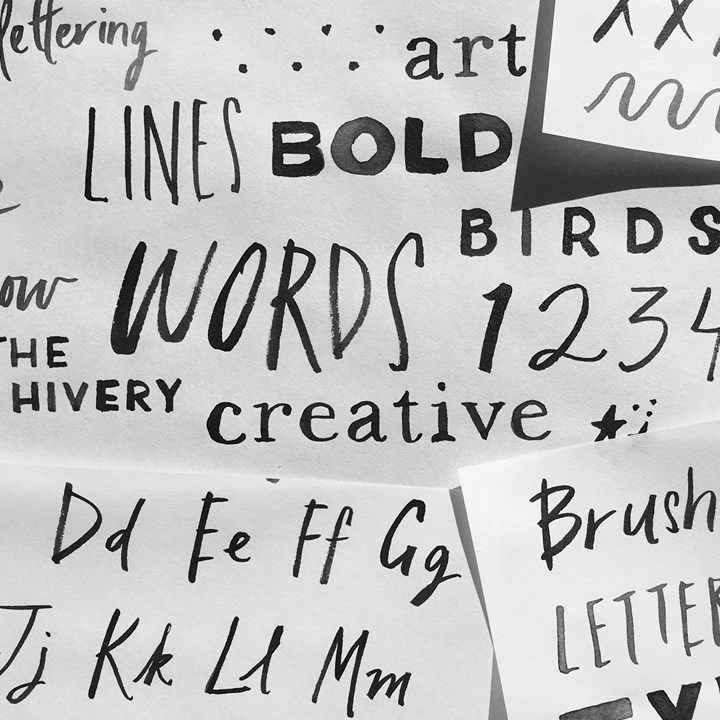 lettering
art
LINES BOLD
BIRDS
WORDS
1234
THE
HIVERY
creative
Dd Ee Ff Gg
Jj Kk Ll Mm
Brush